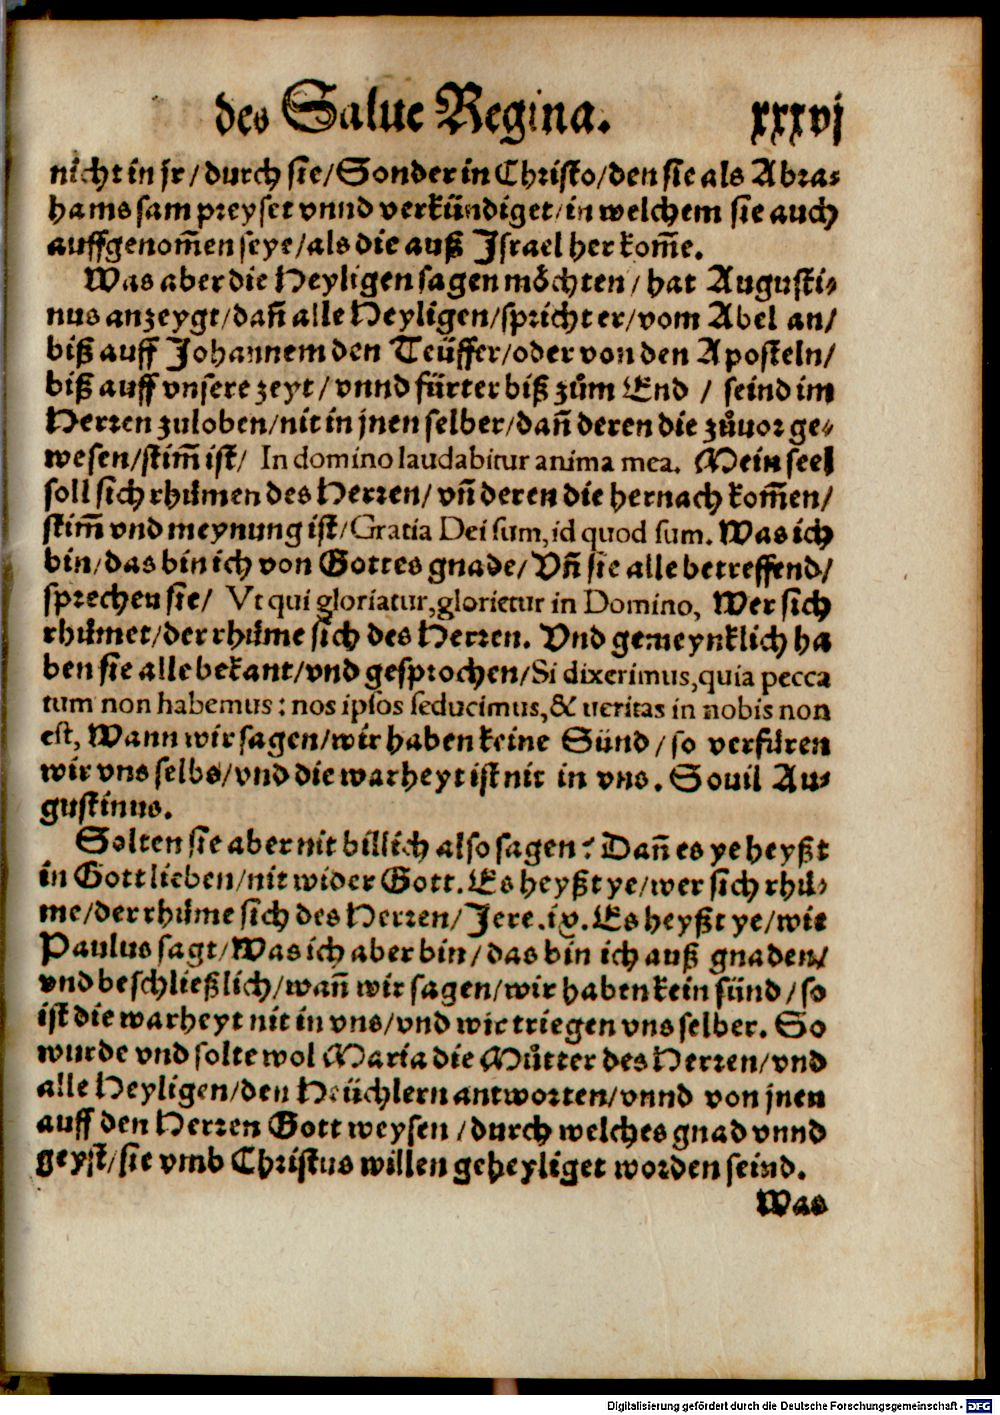 des Salue Regina. xxxvj
nicht in jr/durch sie/Sonder in Christo/den sie als Abra-
hams sam preyset vnnd verkündiget/in welchem sie auch
auffgenom̃en seye/als die auß Israel her kom̃e.
Was aber die Heyligen sagen moͤchten/hat Augusti-
nus anzeygt/dañ alle Heyligen/spricht er/vom Abel an/
biß auff Johannem den Teüffer/oder von den Aposteln/
biß auff vnsere zeyt/vnnd fürter biß zům End / seind im
Herren zuloben/nit in jnen selber/dañ deren die zůuor ge-
wesen/stim̃ ist/ In domino laudabitur anima mea. Mein seel
soll sich rhůmen des Herren/vñ deren die hernach kom̃en/
stim̃ vnd meynung ist/Gratia Dei sum, id quod sum. Was ich
bin/das bin ich von Gottes gnade/Vñ sie alle betreffend/
sprechen sie/ Vt qui gloriatur, glorietur in Domino, Wer sich
rhůmet/der rhůme sich des Herren. Vnd gemeynklich ha
ben sie alle bekant/vnd gesprochen/Si dixerimus, quia pecca
tum non habemus: nos ipsos seducimus, & ueritas in nobis non
est, Wann wir sagen/wir haben keine Sünd/so verfůren
wir vns selbs/vnd die warheyt ist nit in vns. Souil Au-
gustinus.
Solten sie aber nit billich also sagen? Dañ es ye heyßt
in Gott lieben/nit wider Gott. Es heyßt ye/wer sich rhů-
me/der rhůme sich des Herren/Jere.ix. Es heyßt ye/wie
Paulus sagt/Was ich aber bin/das bin ich auß gnaden/
vnd beschließlich/wañ wir sagen/wir haben kein sünd/so
ist die warheyt nit in vns/vnd wir triegen vns selber. So
wurde vnd solte wol Maria die Můtter des Herren/vnd
alle Heyligen/den Heüchlern antworten/vnnd von jnen
auff den Herren Gott weysen/durch welches gnad vnnd
geyst/sie vmb Christus willen geheyliget worden seind.
Was
Digitalisierung gefördert durch die Deutsche Forschungsgemeinschaft - DFG